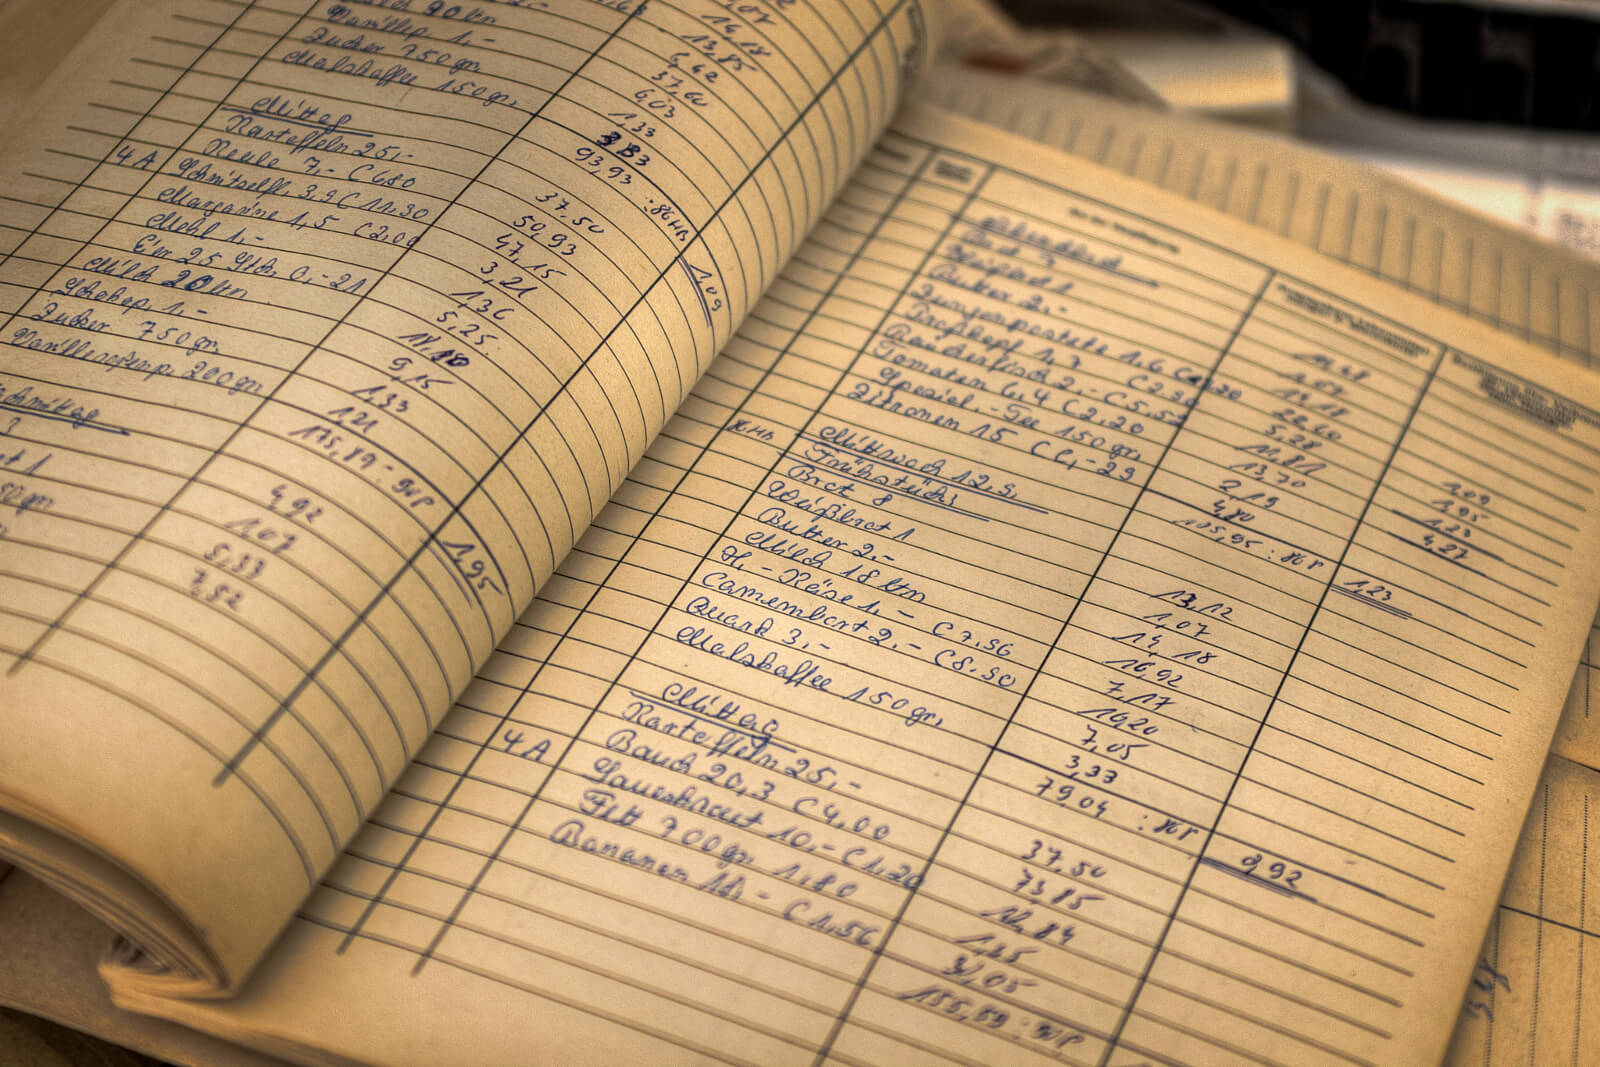 Vanillep. 1,-
Zucker 750 gr.
Malzkaffee 150 gr.
14,18
13,85
6,42
37,60
6,03
1,33
3,33
93,93 : 86 HB
1,09
Mittag
Kartoffeln 25,- 37,50
Keule 7,- C 6,80 50,93
4 A Schnitzelfl. 3,9 C 11.30 47,15
Margarine 1,5 C 2,00 3,21
Mehl 1,- 1,36
Eier 25 Stck. 0,-21 5,25
Milch 20 ltr.
1,- 9,15
Zucker 750 gr. 1,33
200 gr. 1,21
175,89 : 90 P
1,95
4,92
1,07
5,33
7,82
Abendbrot
Brot 7
Weißbrot 1
Butter 2,-
Zungenpastete 1,6
Preßkopf 1,7 C 2.30
Räucherfisch 2,- C 5,52
Tomaten 6,4 C 2,20
Spezial.-Tee 150 gr.
Zitronen 15 C 0,-29
11,48
1,07
14,18
22,60
5,28
11,81
13,70
2,19
4,80
105,95 : 86 P
1,23
1,09
1,95
1,23
4,27
86 HB Mittwoch 12.9.
Frühstück
Brot 8 13,12
Weißbrot 1 1,07
Butter 2,- 14,18
Milch 18 ltr. 16,92
H.-Käse 1,- C 7,56 7,17
Camembert 2,- C 8.50 16,20
Quark 3,- 7,05
Malzkaffee 150 gr. 3,33
79,04 : 86 P
0,92
Mittag
Kartoffeln 25,- 37,50
4 A Bauch 20,3 C 4,00 73,85
Sauerkraut 10,- C 1,20
Fett 700 gr. 1,80
Bananen C 1,56 31,05
155,59 : 90 P